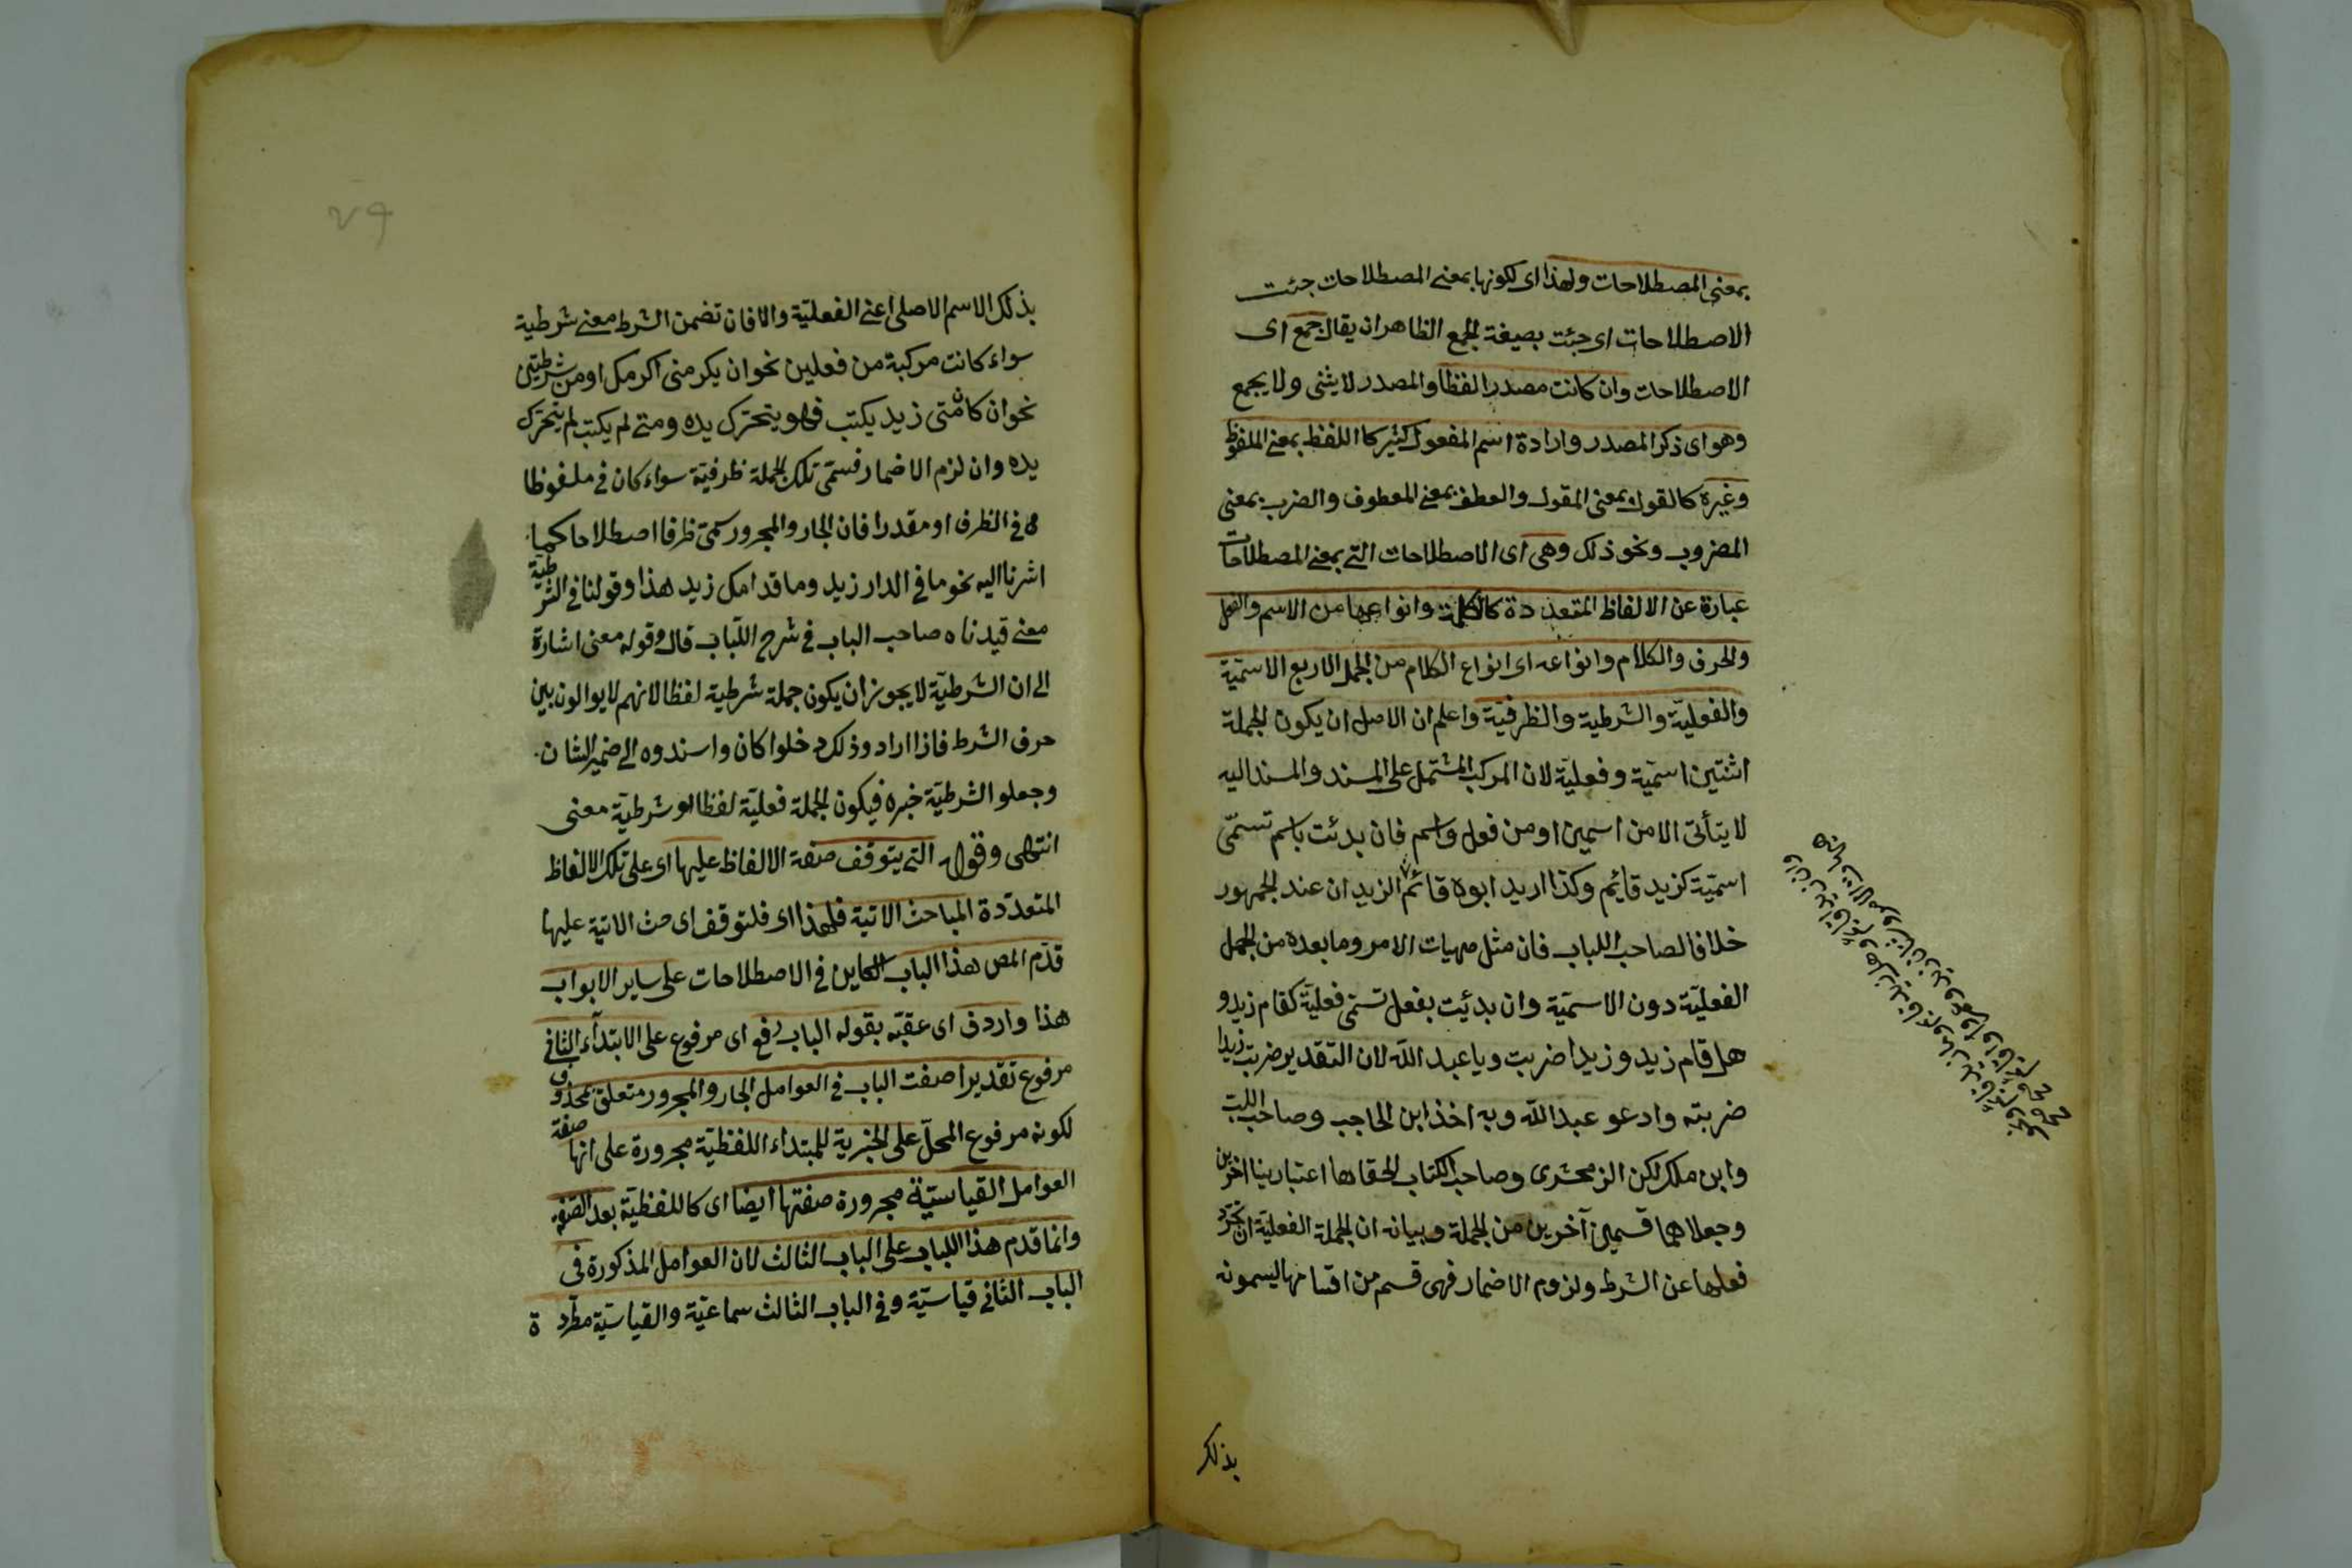 بمعنى المصطلاحات ولهذا اى لكونها بمعنى المصطلاحات جئت
الاصطلاحات اى جئت بصيغة الجمع الظاهر ان يقال جمع اى
الاصطلاحات وان كانت مصدرا لفظا والمصدر لا يثنى ولا يجمع
وهو اى ذكر المصدر وارادة اسم المفعول كثير كا اللفظ بمعنى الملفوظ
وغيره كالقول بمعنى المقول والعطف بمعنى المعطوف والضرب بمعنى
المضروب ونحو ذلك وهى اى الاصطلاحات التى بمعنى المصطلاحات
عبارة عن الالفاظ المتعددة كالكلمة وانواعها من الاسم والفعل
والحرف والكلام وانواعه اى انواع الكلام من الجمل الاربع الاسميّة
والفعليّة والشرطية والظرفيّة واعلم ان الاصل ان يكون الجملة
اثنتين اسميّة وفعليّة لان المركب المشتمل على المسند والمسند اليه
لا يتأتى الا من اسمين او من فعل واسم فان بدئت باسم تسمّى
اسميّة كزيد قائم وكذا اريد ابوه قائم الزيدان عند الجمهور
خلافا لصاحب اللباب فان مثل هيهات الامر وما بعده من الجمل
الفعليّة دون الاسميّة وان بدئيت بفعل تسمّى فعليّة كقام زيد و
هل قام زيد وزيدا ضربت ويا عبد اللّه لان التقدير ضربت زيدا
ضربته وادعو عبد اللّه وبه اخذ ابن الحاجب وصاحب اللب
وابن ملك لكن الزمحشرى وصاحب الكتاب الحقاها اعتبارينا اخرين
وجعلاهما قسمين آخرين من الجملة وبيانه ان الجملة الفعليّة ان تجرّد
فعلها عن الشرط ولزوم الاضمار فهى قسم من اقسامها ليسمونه
بذلك
بذلك الاسم الاصلى اعنى الفعليّة والا فان تضمن الشرط معنى شرطية
سواء كانت مركبة من فعلين نحو ان يكرمنى اكرمك او من شرطيتين
نحو ان كان متى زيد يكتب فهو يتحترك يده ومتى لم يكتب لم يتحترك
يده وان لزم الاضمار فسمّى تلك الجملة ظرفيّة سواء كان فى ملفوظا
فى الظرف او مقدرا فان الجار والمجرور سمّى ظرفا اصطلاحا كما
اشرنا اليه نحو ما فى الدار زيد وما قدامك زيد هذا وقولنا فى الشرطيّة
معنى قيدناه صاحب الباب فى شرح اللّباب قال وقوله معنى اشارة
الى ان الشرطيّة لا يجوز ان يكون جملة شرطية لفظا لانهم لا يوالون بين
حرف الشرط فاذا ارادو ذلك دخلوا كان واسندوه الى ضمير الشان
وجعلو الشرطيّة خبره فيكون الجملة فعليّة لفظا لو شرطيّة معنى
انتهى وقوله التى يتوقف صفة الالفاظ عليها اى على تلك الالفاظ
المتعدّدة المباحث الاتية فلهذا اى فلتوقف اى حث الاتية عليها
قدّم المص هذا الباب الكاين فى الاصطلاحات على ساير الابواب
هذا واردف اى عقبّه بقوله الباب رفع اى مرفوع على الابتدآء الثانى
مرفوع تقديرا صفت الباب فى العوامل الجار والمجرور متعلق بمحذوف
لكونه مرفوع المحلّ على الخبرية للمبتداء اللفظيّة مجرورة على انها صفة
العوامل القياسيّة مجرورة صفتها ايضا اى كاللفظيّة بعد الصّفة
وانما قدم هذا اللباب على الباب الثالث لان العوامل المذكورة فى
الباب الثانى قياسيّة وفى الباب الثالث سماعيّة والقياسيّة مطّردة